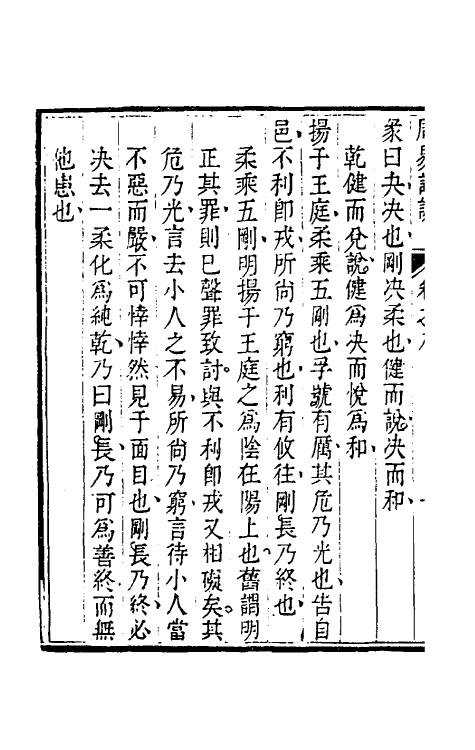 彖曰夬决也剛决柔也健而說决而和
乾健而兊說健爲决而悅爲和
揚于王庭柔乘五剛也孚號有厲其危乃光也告自
邑不利卽戎所尚乃窮也利有攸往剛長乃終也
柔乘五剛明揚于王庭之爲陰在陽上也舊謂明
正其罪則巳聲罪致討與不利卽戎又相礙矣其
危乃光言去小人之不易所尚乃窮言待小人當
不惡而嚴不可悻悻然見于面目也剛長乃終必
决去一柔化爲純乾乃曰剛長乃可爲善終而無
他患也